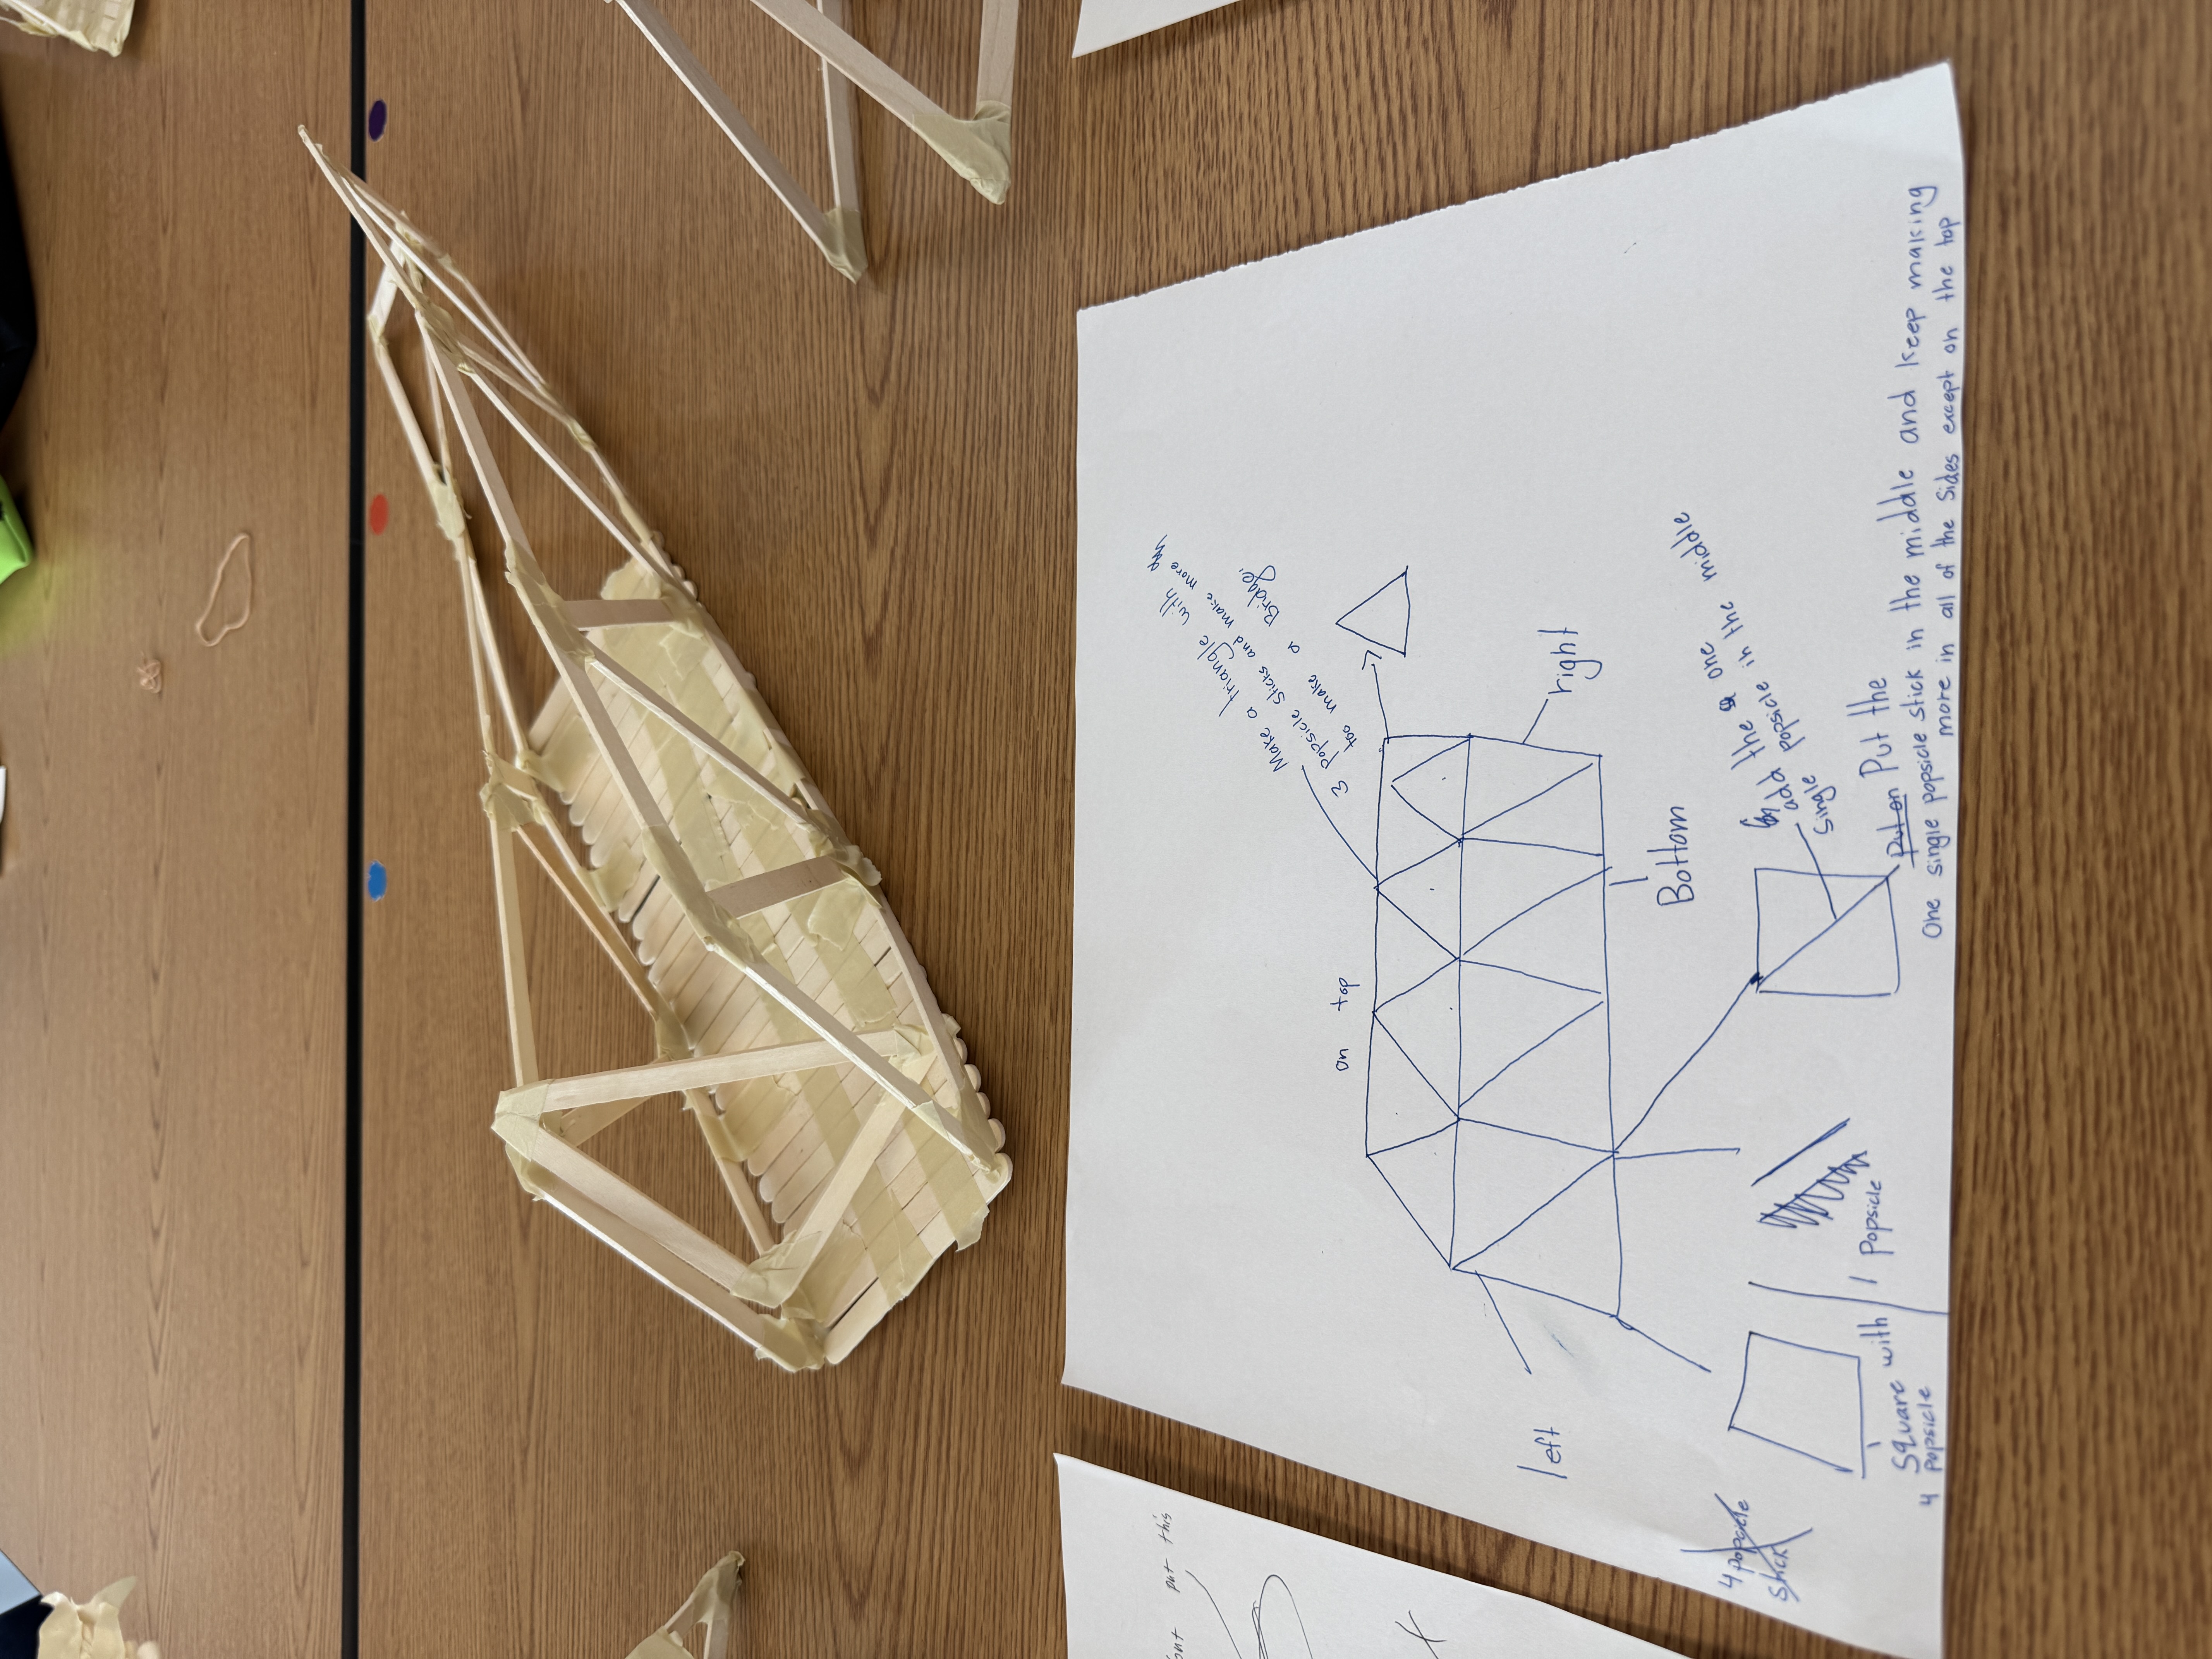 put this
Make a triangle with
3 popsicle sticks and make more
too make a Bridge.
on top
left
right
Bottom
4 popcicle
stick
Square with
4 popsicle
1 Popsicle
add the one
single popsicle in the middle
put on Put the
One single popsicle stick in the middle and keep making
more in all of the Sides except on the top